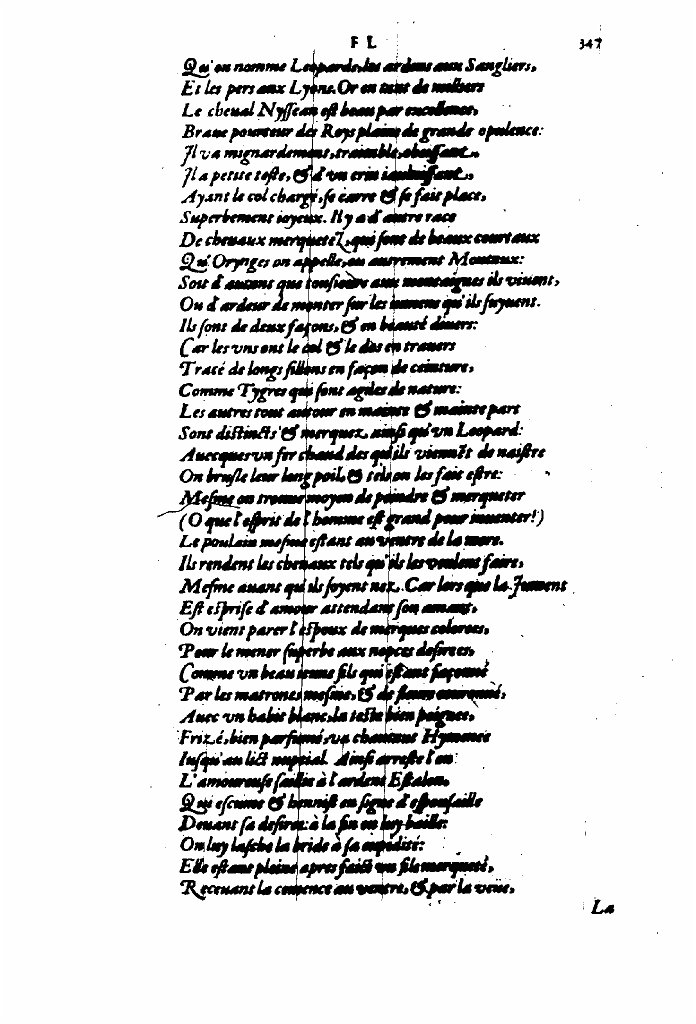 F L 347
Qu'on nomme Leopards, les ardens aux Sangliers,
Et les pers aux Lyons. Or en tant de milliers
Le cheual Nyssean est beau par excellence,
Braue pourteur des Roys plains de grande opulence:
Il va mignardement, traitable, obeissant,
Il a petite teste, & d'un crin
Ayant le col chargé, se carre & se fait place,
Superbement ioyeux. Il y a d'autre race
De cheuaux merquetez, qui sont de beaux courtaux
Qu'Orynges on appelle, ou autrement Monteux:
Soit d'autant que tousiours aux montaignes ils viuent,
Ou d'ardeur de monter sur les iumens qu'ils suyuent.
Ils sont de deux façons, & en beauté diuers:
Car les vns ont le col & le dos en trauers
Tracé de longs sillons en façon de ceinture,
Comme Tygres qui sont agiles de nature:
Les autres tout autour en mainte & mainte part
Sont distincts & merquez, ainsi qu'vn Leopard:
Auecques vn fer chaud des qu'ils viennēt de naistre
On brusle leur long poil, & tels on les fait estre:
Mesme on trouue moyen de peindre & merqueter
(O que l'esprit de l'homme est grand pour inuenter!)
Le poulain mesme estant au ventre de la mere.
Ils rendent les cheuaux tels qu'ils les veulent faire,
Mesme auant qu'ils soyent nez. Car lors que la Jument
Est esprise d'amour attendant son amant,
On vient parer l'espoux de merques colorees,
Pour le mener superbe aux nopces desirees,
Comme vn beau ieune fils qui estant façonné
Par les matrones mesme, & de fleurs couronné,
Auec vn habit blanc, la teste bien peignee,
Frizé, bien parfumé, va chantant Hymenee
Iusqu'au lict nuptial. Ainsi arreste l'on
L'amoureuse saillie à l'ardent Estalon,
Qui escume & hennist en signe d'espousaille
Deuant sa desiree: à la fin on luy baille:
On luy lasche la bride à sa cupidité:
Elle estant pleine apres faict vn fils merqueté,
Receuant la semence au ventre, & par la veuë,
La